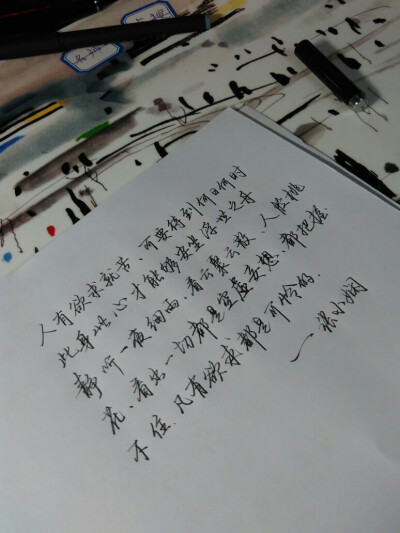 人有欲求就苦、可要待到何日何时
此身此心才能够安坐浮世之舟
静听一夜细雨、看云聚云散、人依桃
花、看出一切都是空虚妄想、都把握
不住、凡有欲求都是可怜的.
一张小娴